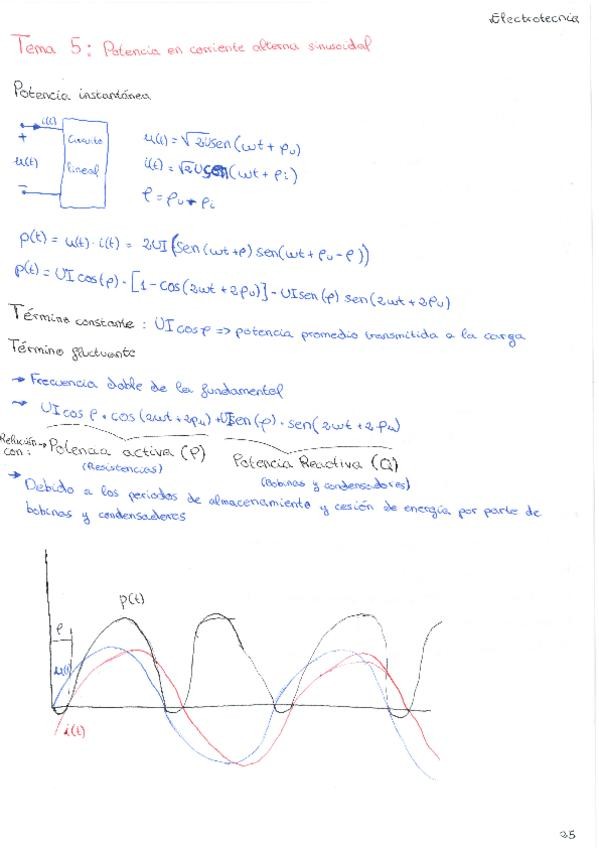 Electrotecnia
Tema 5: Potencia en corriente alterna sinusoidal
Potencia instantánea
i(t)
+
u(t)
-
Circuito
lineal
u(t) = √2 sen(ωt + φu)
i(t) = √2 sen(ωt + φi)
φ = φu φi
p(t) = u(t) · i(t) = 2UI (sen(ωt + φ) sen(ωt + φu - φ))
p(t) = UI cos(φ) · [1 - cos(2ωt + 2φu)] - UI sen(φ) sen(2ωt + 2φu)
Término constante : UI cos φ => potencia promedio transmitida a la carga
Término fluctuante
→ Frecuencia doble de la fundamental
→ UI cos φ · cos(2ωt + 2φu) + UI sen(φ) · sen(2ωt + 2φu)
Relación → Potencia activa (P) Potencia Reactiva (Q)
con: (Resistencias) (Bobinas y condensadores)
→ Debido a los periodos de almacenamiento y cesión de energía por parte de
bobinas y condensadores
p(t)
φ
u(t)
i(t)